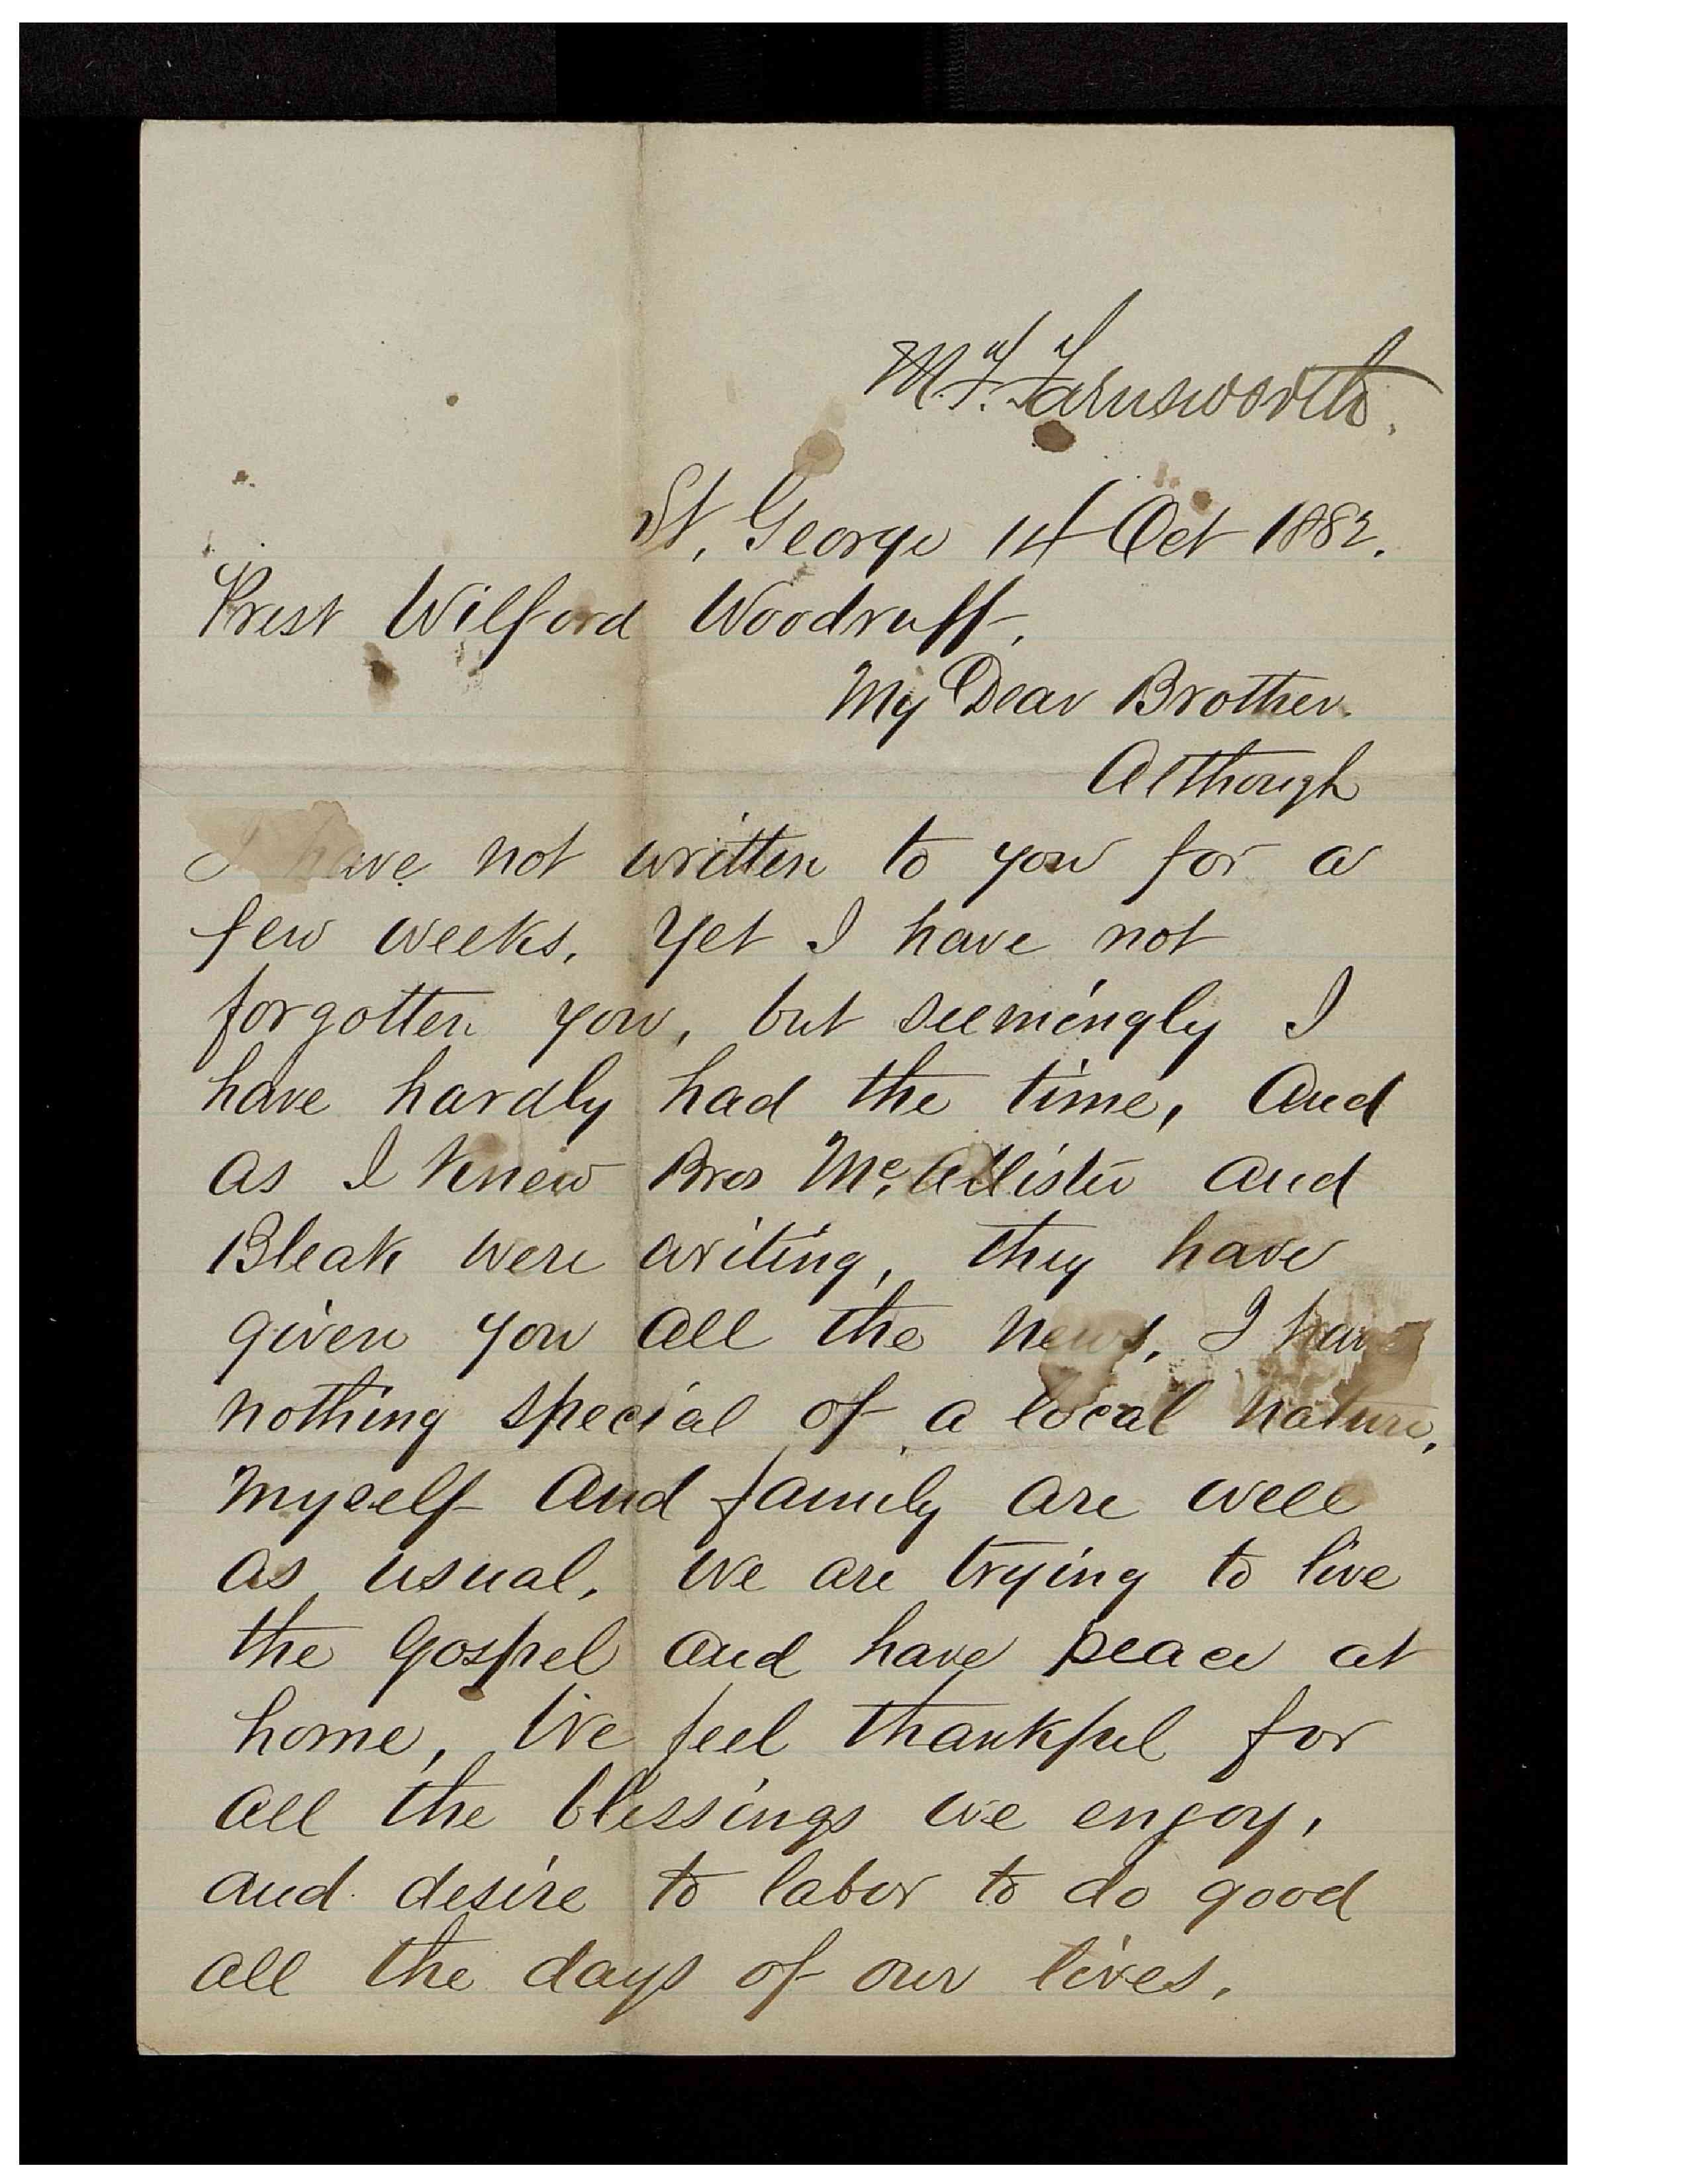 M. F. Farnsworth.
St, George 14 Oct 1882.
Prest Wilford Woodruff,
My Dear Brother.
Although
I have not written to you for a
few weeks, Yet I have not
forgotten you, but seemingly I
have hardly had the time, And
as I knew Bros Mc,Allister and
Bleak were writing, they have
given you all the news, I have
nothing special of a local nature,
Myself And family are well
as usual, We are trying to live
the Gospel and have peace at
home, We feel thankful for
all the blessings we enjoy,
and desire to labor to do good
all the days of our lives,